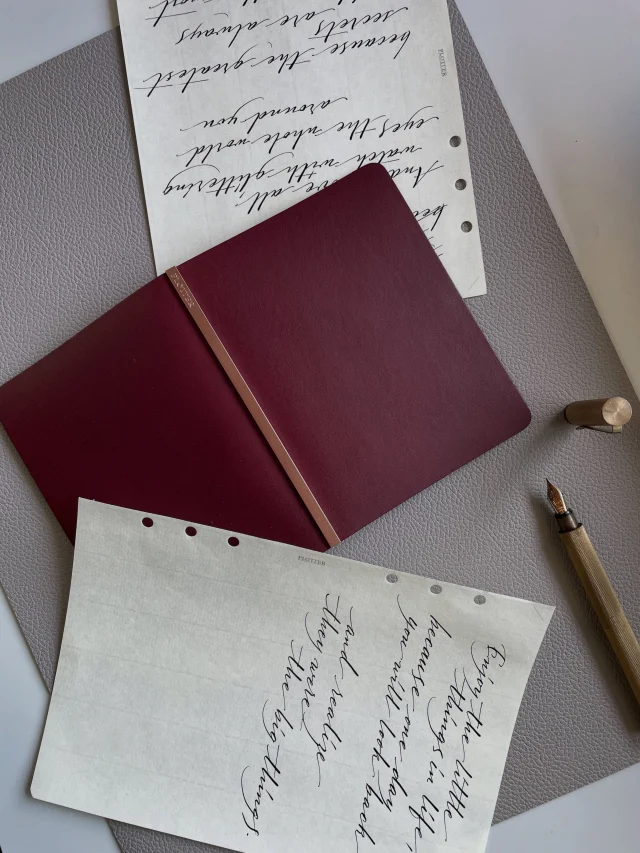 PLOTTER
And all,
watch with glittering
eyes the whole world
around you
because the greatest
secrets are always
PLOTTER
PLOTTER
Enjoy the little
things in life,
because one day
you will look back
and realize
they were
the big things.